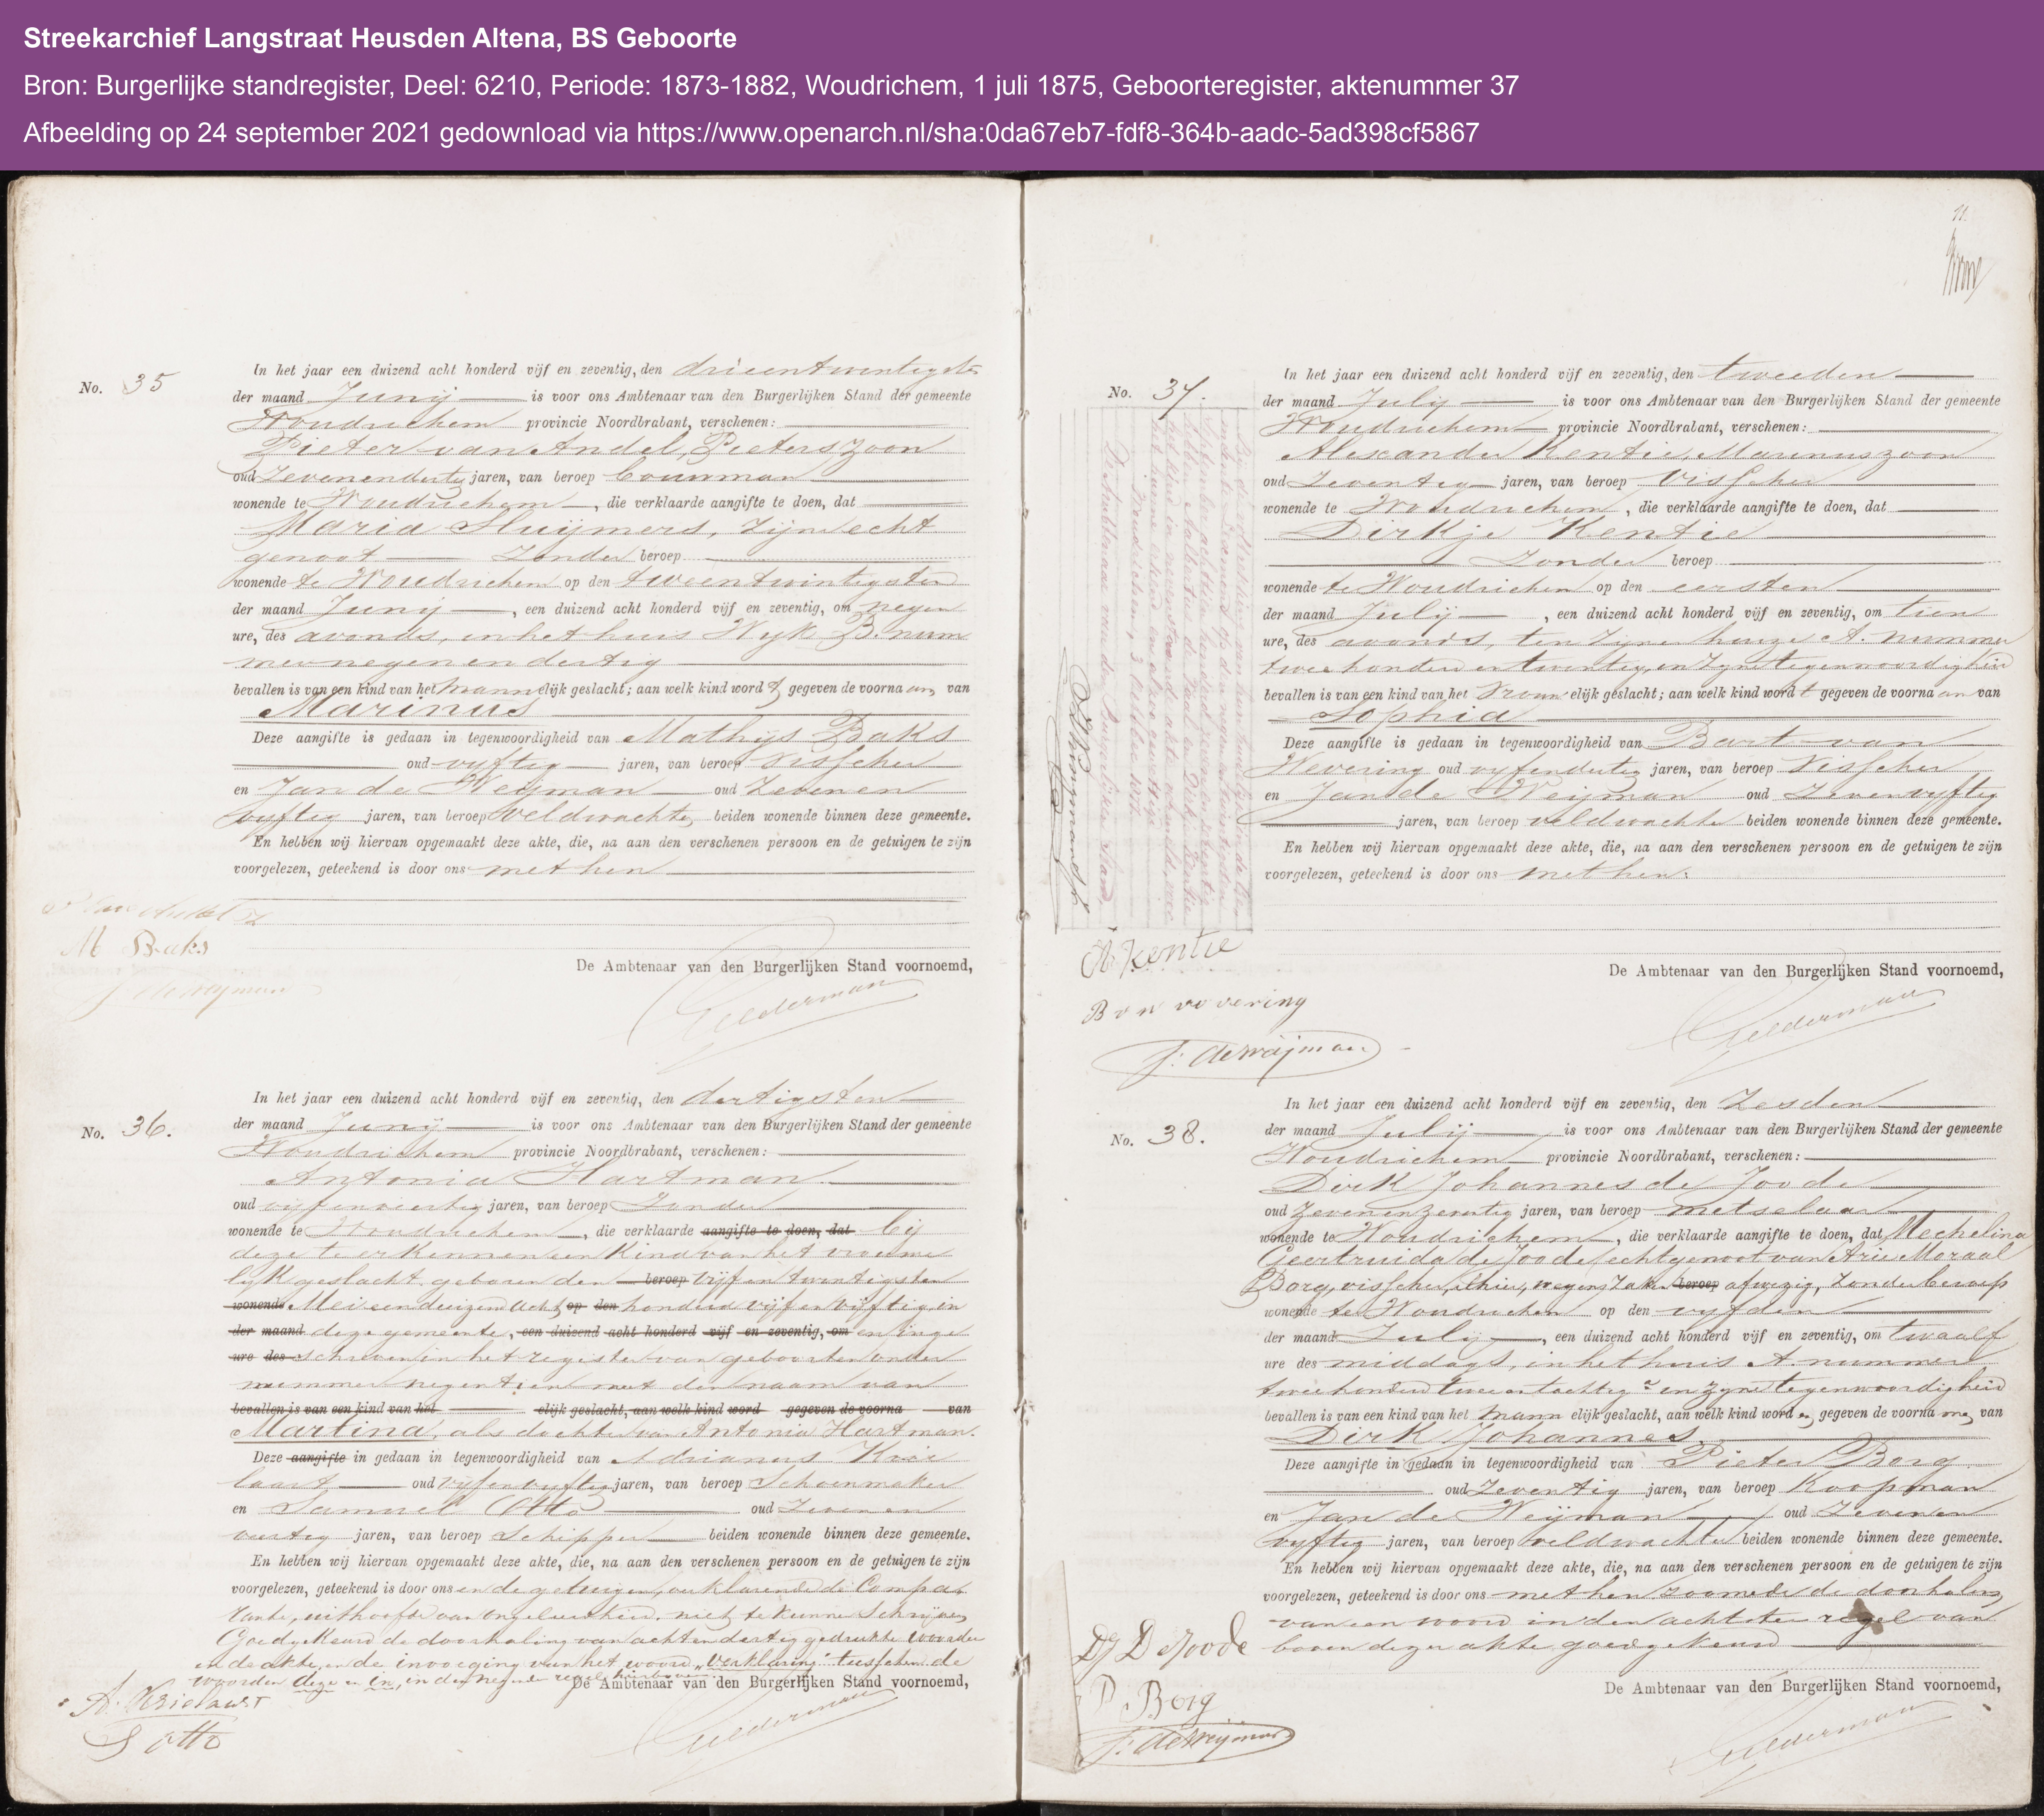 Streekarchief Langstraat Heusden Altena, BS Geboorte
Bron: Burgerlijke standregister, Deel: 6210, Periode: 1873-1882, Woudrichem, 1 juli 1875, Geboorteregister, aktenummer 37
Afbeelding op 24 september 2021 gedownload via https://www.openarch.nl/sha:0da67eb7-fdf8-364b-aadc-5ad398cf5867
No. 35
In het jaar een duizend acht honderd vijf en zeventig, den drieentwintigste
der maand Junij is voor ons Ambtenaar van den Burgerlijken Stand der gemeente
Woudrichem provincie Noordbrabant, verschenen:
Pieter van Andel, Pieterszoon
oud zevenendertig jaren, van beroep bouwman
wonende te Woudrichem, die verklaarde aangifte te doen, dat
Maria Sluijmers, zijn echt
genoot zonder beroep
wonende te Woudrichem op den tweentwintigsten
der maand Junij, een duizend acht honderd vijf en zeventig, om negen
ure, des avonds, in het huis Wijk B. num
mer negen en dertig
bevallen is van een kind van het mannelijk geslacht; aan welk kind word gegeven de voornaam van
Marinus
Deze aangifte is gedaan in tegenwoordigheid van Mathijs Baks
oud vijftig jaren, van beroep visscher
en Jan de Weijman oud zevenen
vijftig jaren, van beroep veldwachter beiden wonende binnen deze gemeente.
En hebben wij hiervan opgemaakt deze akte, die, na aan den verschenen persoon en de getuigen te zijn
voorgelezen, geteekend is door ons met hen
M Baks
J. deWeijman
De Ambtenaar van den Burgerlijken Stand voornoemd,
Gelderman
No. 36.
In het jaar een duizend acht honderd vijf en zeventig, den dertigsten
der maand Junij is voor ons Ambtenaar van den Burgerlijken Stand der gemeente
Woudrichem provincie Noordbrabant, verschenen:
Antonia Hartman.
oud vijfenveertig jaren, van beroep zonder
wonende te Woudrichem, die verklaarde aangifte te doen, dat bij
deze te erkennen een kind van het vrouwe
lijk geslacht geboren den beroep vijf en twintigsten
wonende Mei een duizend acht op den honderd vijf en vijftig, in
der maand deze gemeente, een duizend acht honderd vijf en zeventig, om en inge
ure des schreven in het register van geboorten onder
nummer negentien met den naam van
bevallen is van een kind van het elijk geslacht, aan welk kind word gegeven de voorna van
Martina, als dochter van Antonia Hartman.
Deze aangifte in gedaan in tegenwoordigheid van Adrianus Krie
laart oud vijfenvijftig jaren, van beroep Schoenmaker
en Samuel Otto oud zevenen
veertig jaren, van beroep Schipper beiden wonende binnen deze gemeente.
En hebben wij hiervan opgemaakt deze akte, die, na aan den verschenen persoon en de getuigen te zijn
voorgelezen, geteekend is door ons en de getuigen, verklarende de Compa
rante, uithoofde van ongeleerdheid, niet te kunnen Schrijven
Goedgekeurd de doorhaling van achtendertig gedrukte woorden
in de akte, en de invoeging van het woord "verklaring" tusschen de
woorden deze en in, in den negende regel hierboven
De Ambtenaar van den Burgerlijken Stand voornoemd,
A. Krielaart
S Otto
Gelderman
11.
No. 37.
In het jaar een duizend acht honderd vijf en zeventig, den tweeden
der maand Julij is voor ons Ambtenaar van den Burgerlijken Stand der gemeente
Woudrichem provincie Noordbrabant, verschenen:
Alexander Kentie, Marinuszoon
oud zeventig jaren, van beroep visscher
wonende te Woudrichem, die verklaarde aangifte te doen, dat
Dirkje Kentie
zonder beroep
wonende te Woudrichem op den eersten
der maand Julij, een duizend acht honderd vijf en zeventig, om tien
ure, des avonds, ten zijnen huize A. nummer
twee honderd en twintig, en zijne tegenwoordigheid
bevallen is van een kind van het vrouwelijk geslacht; aan welk kind wordt gegeven de voornaam van
Sophia
Deze aangifte is gedaan in tegenwoordigheid van Bart van
Wevering oud vijfendertig jaren, van beroep visscher
en Jan de Weijman oud zevenvijftig
jaren, van beroep veldwachter beiden wonende binnen deze gemeente.
En hebben wij hiervan opgemaakt deze akte, die, na aan den verschenen persoon en de getuigen te zijn
voorgelezen, geteekend is door ons met hen.
A Kentie
B v wevering
J. deWeijman
De Ambtenaar van den Burgerlijken Stand voornoemd,
Gelderman
No. 38.
In het jaar een duizend acht honderd vijf en zeventig, den zesden
der maand Julij is voor ons Ambtenaar van den Burgerlijken Stand der gemeente
Woudrichem provincie Noordbrabant, verschenen:
Dirk Johannes de Joode
oud zevenenzeventig jaren, van beroep metselaar
wonende te Woudrichem, die verklaarde aangifte te doen, dat Mechelina
Geertruida de Joode, echtgenoot van Arie Moraal
Borg, visscher, alhier, wegens zaken beroep afwezig, zonder beroep
wonende te Woudrichem op den vijfden
der maand Julij, een duizend acht honderd vijf en zeventig, om twaalf
ure des middags, in het huis A. nummer
twee honderd twee en tachtig a en zijne tegenwoordigheid
bevallen is van een kind van het mannelijk geslacht, aan welk kind worden gegeven de voornamen van
Dirk Johannes.
Deze aangifte in gedaan in tegenwoordigheid van Pieter Borg
oud zeventig jaren, van beroep Koopman
en Jan de Weijman oud zevenen
vijftig jaren, van beroep veldwachter beiden wonende binnen deze gemeente.
En hebben wij hiervan opgemaakt deze akte, die, na aan den verschenen persoon en de getuigen te zijn
voorgelezen, geteekend is door ons met hen zoomede de doorhaling
van een woord in den achtsten regel van
boven dezer akte goedgekeurd
DJ De Joode
P. Borg
J. deWeijman
De Ambtenaar van den Burgerlijken Stand voornoemd,
Gelderman